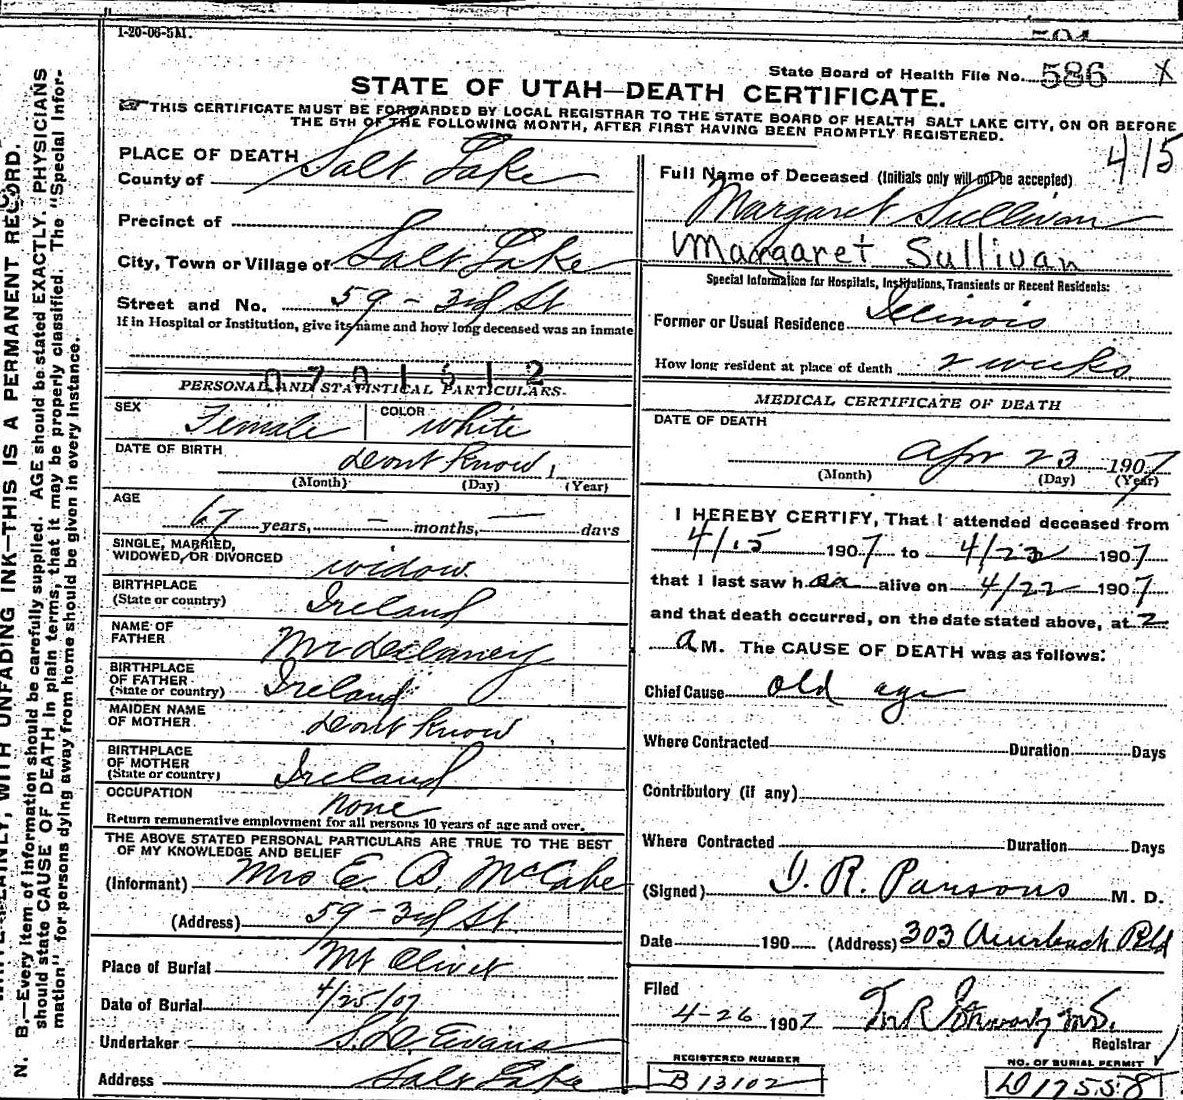 1-20-06-5M.
State Board of Health File No. 586 X
STATE OF UTAH—DEATH CERTIFICATE.
THIS CERTIFICATE MUST BE FORWARDED BY LOCAL REGISTRAR TO THE STATE BOARD OF HEALTH SALT LAKE CITY, ON OR BEFORE
THE 5TH OF THE FOLLOWING MONTH, AFTER FIRST HAVING BEEN PROMPTLY REGISTERED.
415
PLACE OF DEATH
County of Salt Lake
Precinct of
City, Town or Village of Salt Lake
Street and No. 59 - 3rd St
If in Hospital or Institution, give its name and how long deceased was an inmate
0701512
PERSONAL AND STATISTICAL PARTICULARS.
SEX Female COLOR white
DATE OF BIRTH dont know 1
(Month) (Day) (Year)
AGE
67 years, — months, — days
SINGLE, MARRIED,
WIDOWED, OR DIVORCED widow
BIRTHPLACE
(State or country) Ireland
NAME OF
FATHER Mr Delaney
BIRTHPLACE
OF FATHER
(State or country) Ireland
MAIDEN NAME
OF MOTHER dont know
BIRTHPLACE
OF MOTHER
(State or country) Ireland
OCCUPATION none
Return remunerative employment for all persons 10 years of age and over.
THE ABOVE STATED PERSONAL PARTICULARS ARE TRUE TO THE BEST
OF MY KNOWLEDGE AND BELIEF
(Informant) Mrs E. B. McCabe
(Address) 59 - 3rd St.
Place of Burial Mt Olivet
Date of Burial 4/25/07
Undertaker S. D. Evans
Address Salt Lake
Full Name of Deceased (Initials only will not be accepted)
Margaret Sullivan
Margaret Sullivan
Special Information for Hospitals, Institutions, Transients or Recent Residents:
Former or Usual Residence Illinois
How long resident at place of death 2 weeks
MEDICAL CERTIFICATE OF DEATH
DATE OF DEATH
Apr 23 1907
(Month) (Day) (Year)
I HEREBY CERTIFY, That I attended deceased from
4/15 1907 to 4/23 1907
that I last saw her alive on 4/22 1907
and that death occurred, on the date stated above, at 2
a M. The CAUSE OF DEATH was as follows:
Chief Cause old age
Where Contracted Duration Days
Contributory (if any)
Where Contracted Duration Days
(Signed) J. R. Parsons M. D.
Date 190 (Address) 303 Auerbach Bld
Filed
4-26 1907
Registrar
REGISTERED NUMBER
B 13102
NO. OF BURIAL PERMIT
D 17558
N. B.—Every item of information should be carefully supplied. AGE should be stated EXACTLY. PHYSICIANS
should state CAUSE OF DEATH in plain terms, that it may be properly classified. The "Special Infor-
mation" for persons dying away from home should be given in every instance.
PLAINLY, WITH UNFADING INK—THIS IS A PERMANENT RECORD.